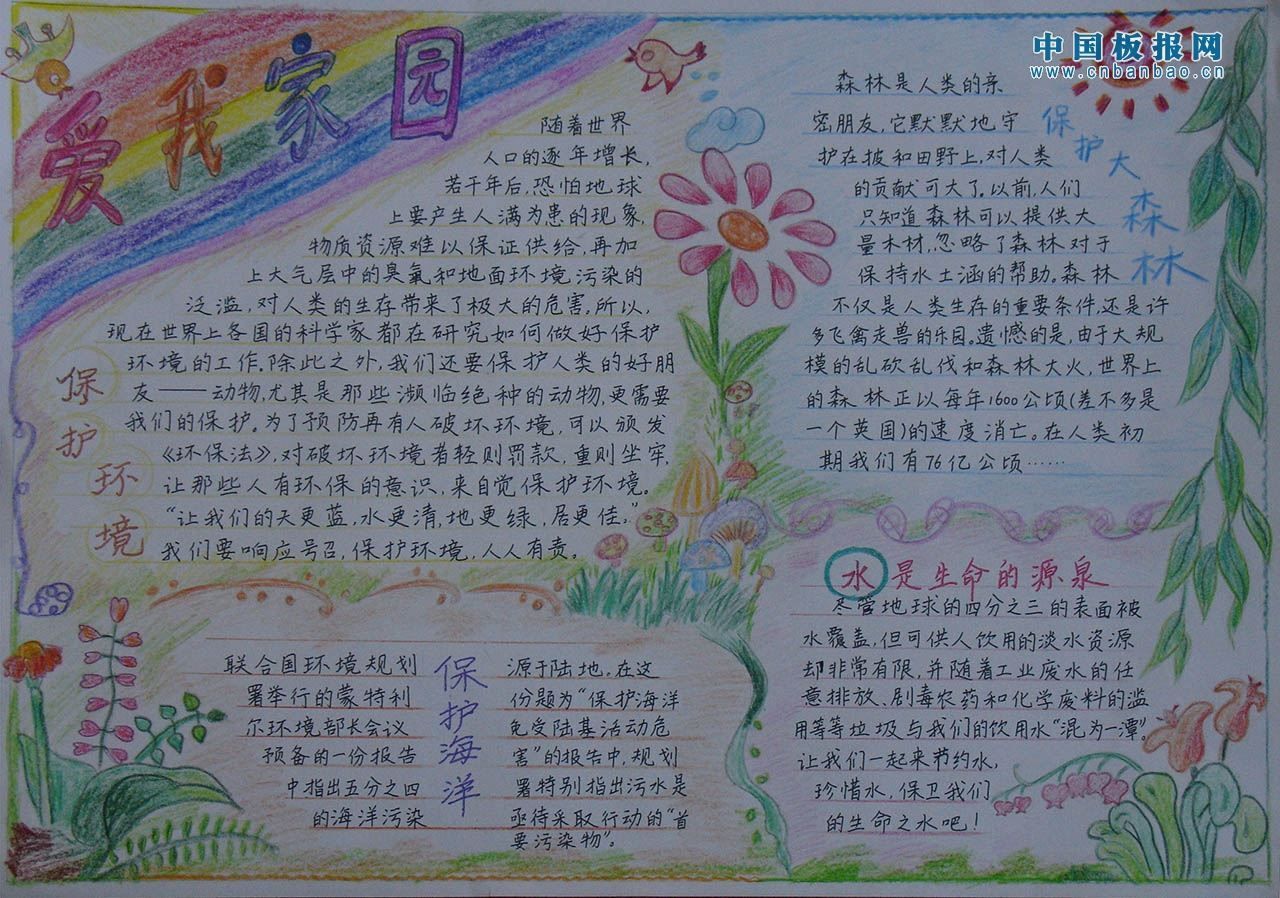 爱我家园
中国板报网
www.cnbanbao.cn
保护环境
随着世界
人口的逐年增长,
若干年后,恐怕地球
上要产生人满为患的现象,
物质资源难以保证供给,再加
上大气层中的臭氧和地面环境污染的
泛滥,对人类的生存带来了极大的危害,所以,
现在世界上各国的科学家都在研究如何做好保护
环境的工作.除此之外,我们还要保护人类的好朋
友——动物,尤其是那些濒临绝种的动物,更需要
我们的保护。为了预防再有人破坏环境,可以颁发
《环保法》,对破坏环境者轻则罚款,重则坐牢,
让那些人有环保的意识,来自觉保护环境。
“让我们的天更蓝,水更清,地更绿,居更佳。”
我们要响应号召,保护环境,人人有责。
保护大森林
森林是人类的亲
密朋友,它默默地守
护在披和田野上,对人类
的贡献可大了.以前,人们
只知道森林可以提供大
量木材,忽略了森林对于
保持水土涵的帮助.森林
不仅是人类生存的重要条件,还是许
多飞禽走兽的乐园.遗憾的是,由于大规
模的乱砍乱伐和森林大火,世界上
的森林正以每年1600公顷(差不多是
一个英国)的速度消亡。在人类初
期我们有76亿公顷……
水是生命的源泉
尽管地球的四分之三的表面被
水覆盖,但可供人饮用的淡水资源
却非常有限,并随着工业废水的任
意排放、剧毒农药和化学废料的滥
用等等垃圾与我们的饮用水“混为一潭”。
让我们一起来节约水,
珍惜水,保卫我们
的生命之水吧!
保护海洋
联合国环境规划
署举行的蒙特利
尔环境部长会议
预备的一份报告
中指出五分之四
的海洋污染
源于陆地.在这
份题为“保护海洋
免受陆基活动危
害”的报告中,规划
署特别指出污水是
亟待采取行动的“首
要污染物”。